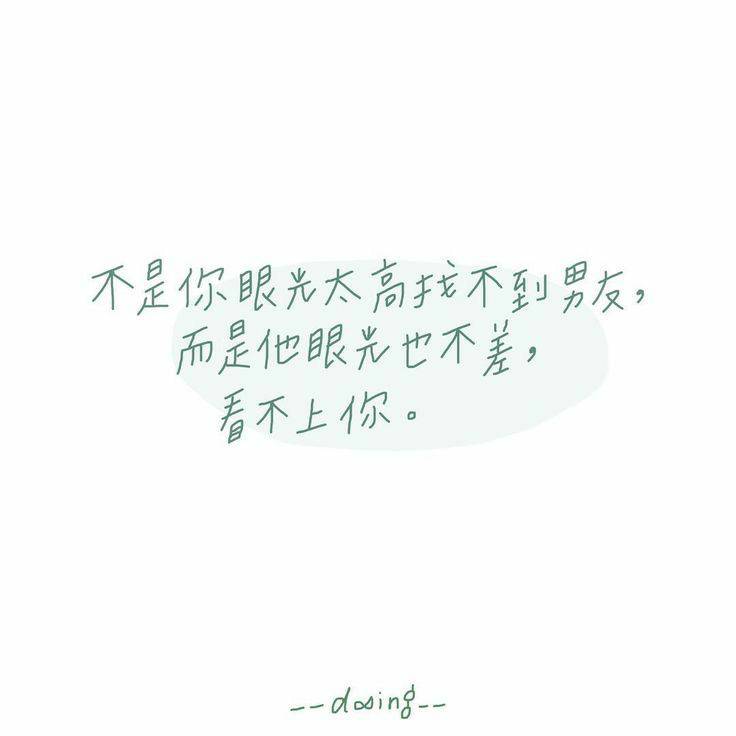 不是你眼光太高找不到男友，
而是他眼光也不差，
看不上你。
--d∞ing--